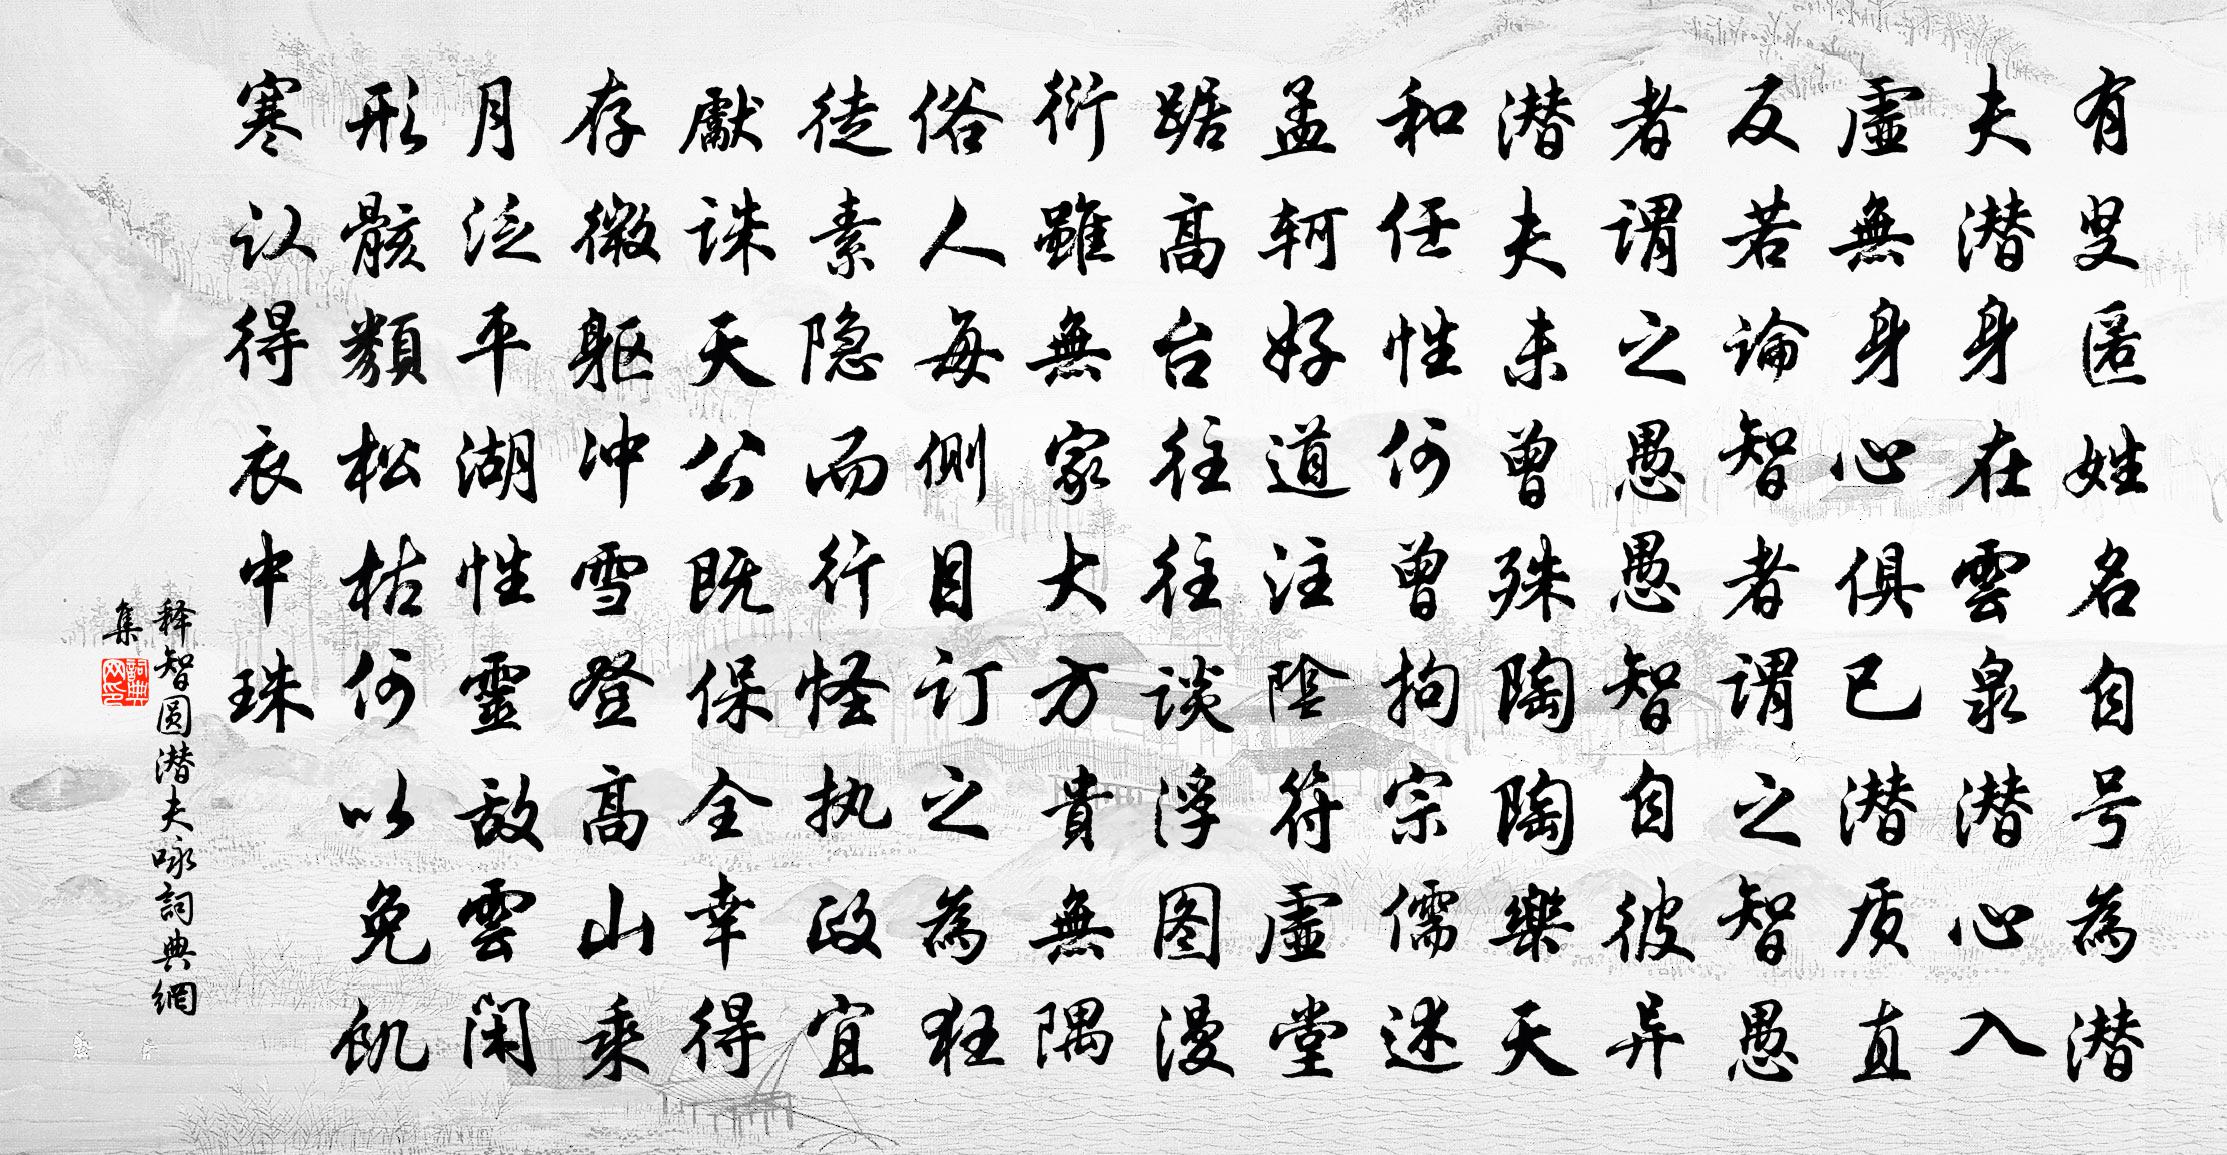 有叟匿姓名自号為潜
夫潜身在雲泉潜心入
虛無身心俱已潜质直
反若論智者謂之智愚
者謂之愚愚智自彼异
潜夫未曾殊陶陶樂天
和任性何曾拘宗儒述
孟軻好道注陰符虛堂
踞高台往往談浮图漫
衍雖無家大方貴無隅
俗人每側目订之為狂
徒素隐而行怪执政宜
獻誅天公既保全幸得
存微躯冲雪登高山乘
月泛平湖性靈敌雲閑
形骸類松枯何以免飢
寒认得衣中珠
释智圆潜夫咏詞典網
集